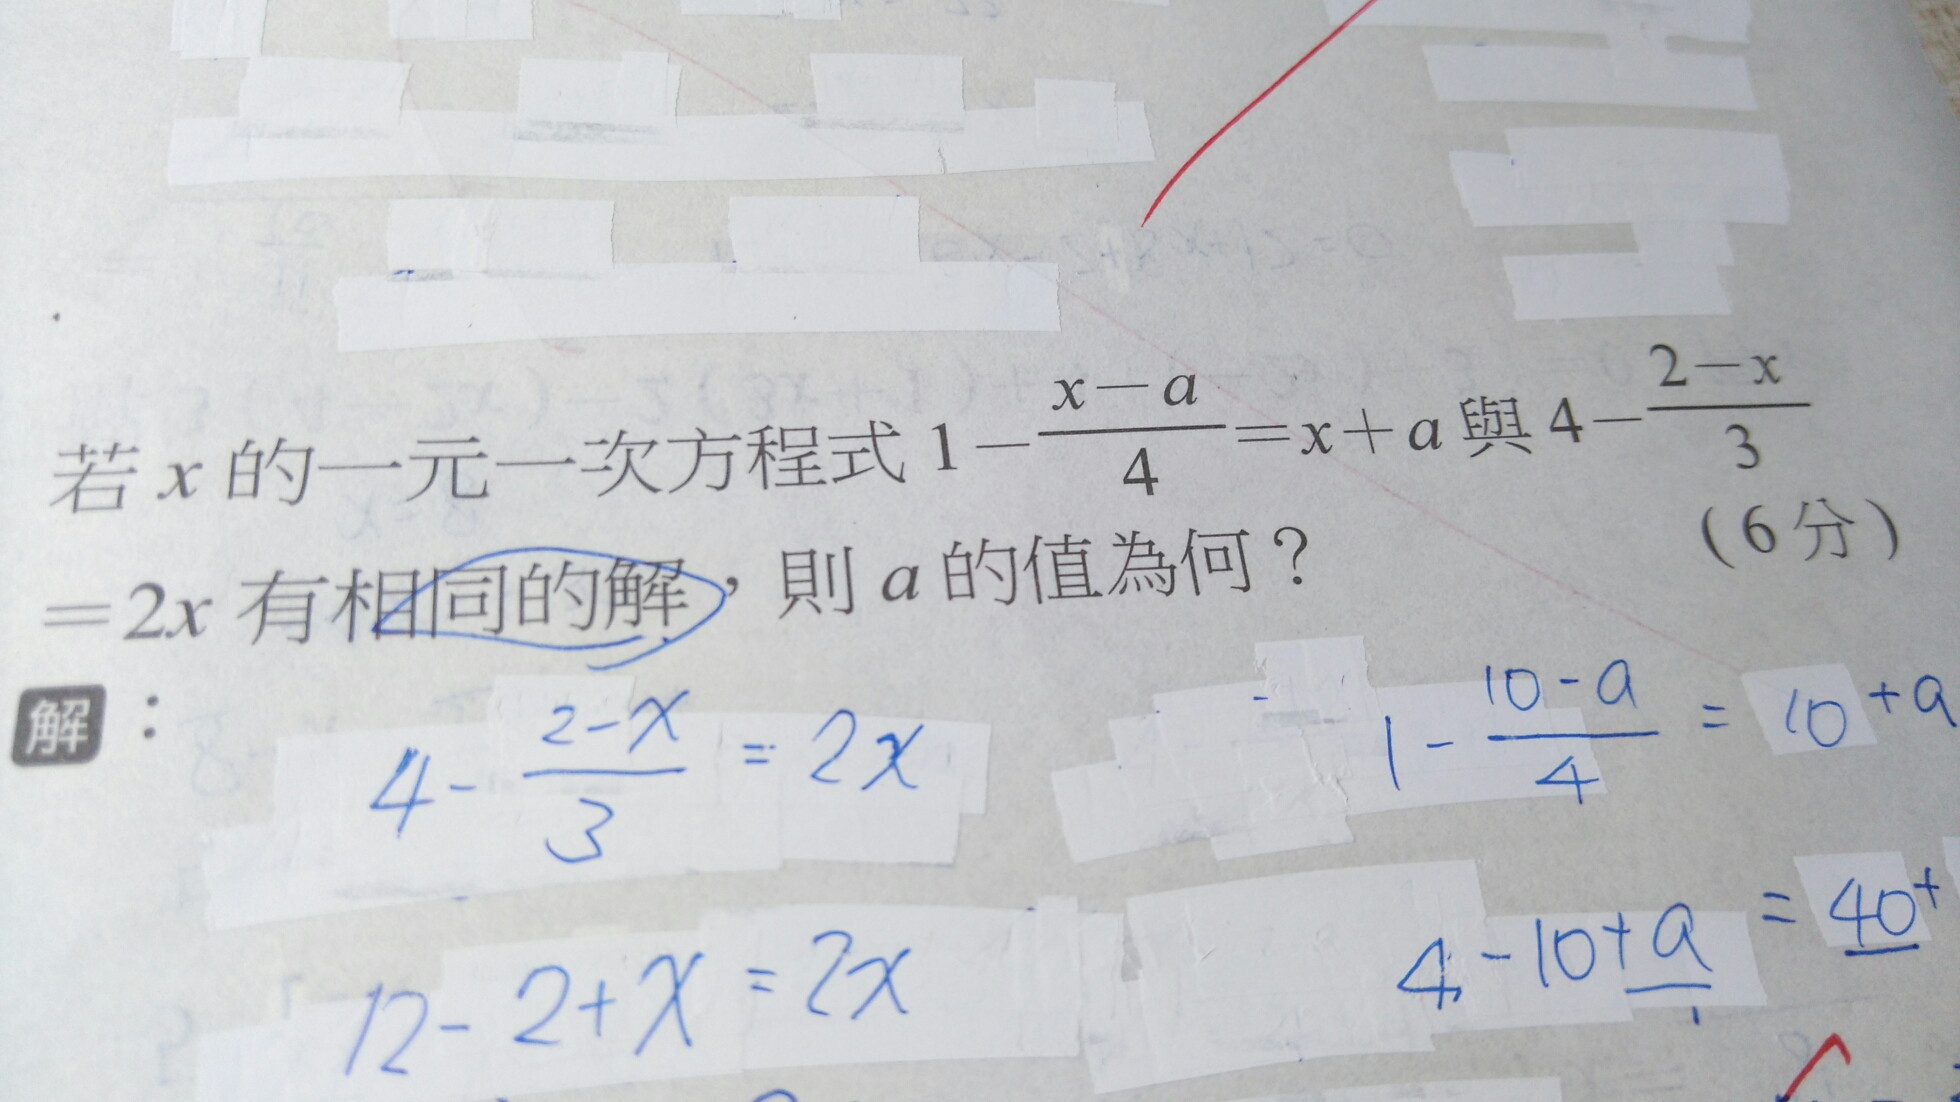 若 x 的一元一次方程式 1－\frac{x－a}{4}＝x＋a 與 4－\frac{2－x}{3}
＝2x 有相同的解，則 a 的值為何？ （6 分）
解：
4 - \frac{2-x}{3} = 2x
1 - \frac{10-a}{4} = 10+a
12 - 2+x = 2x
4-10+a = 40+